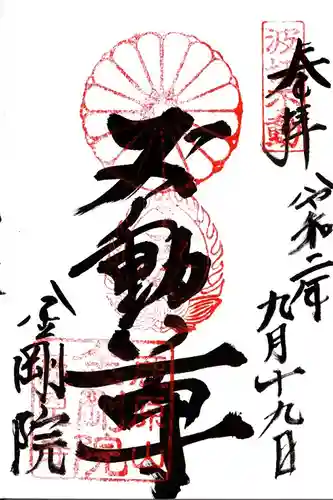 波切不動
奉拝
令和二年
九月十九日
不動尊
金剛院